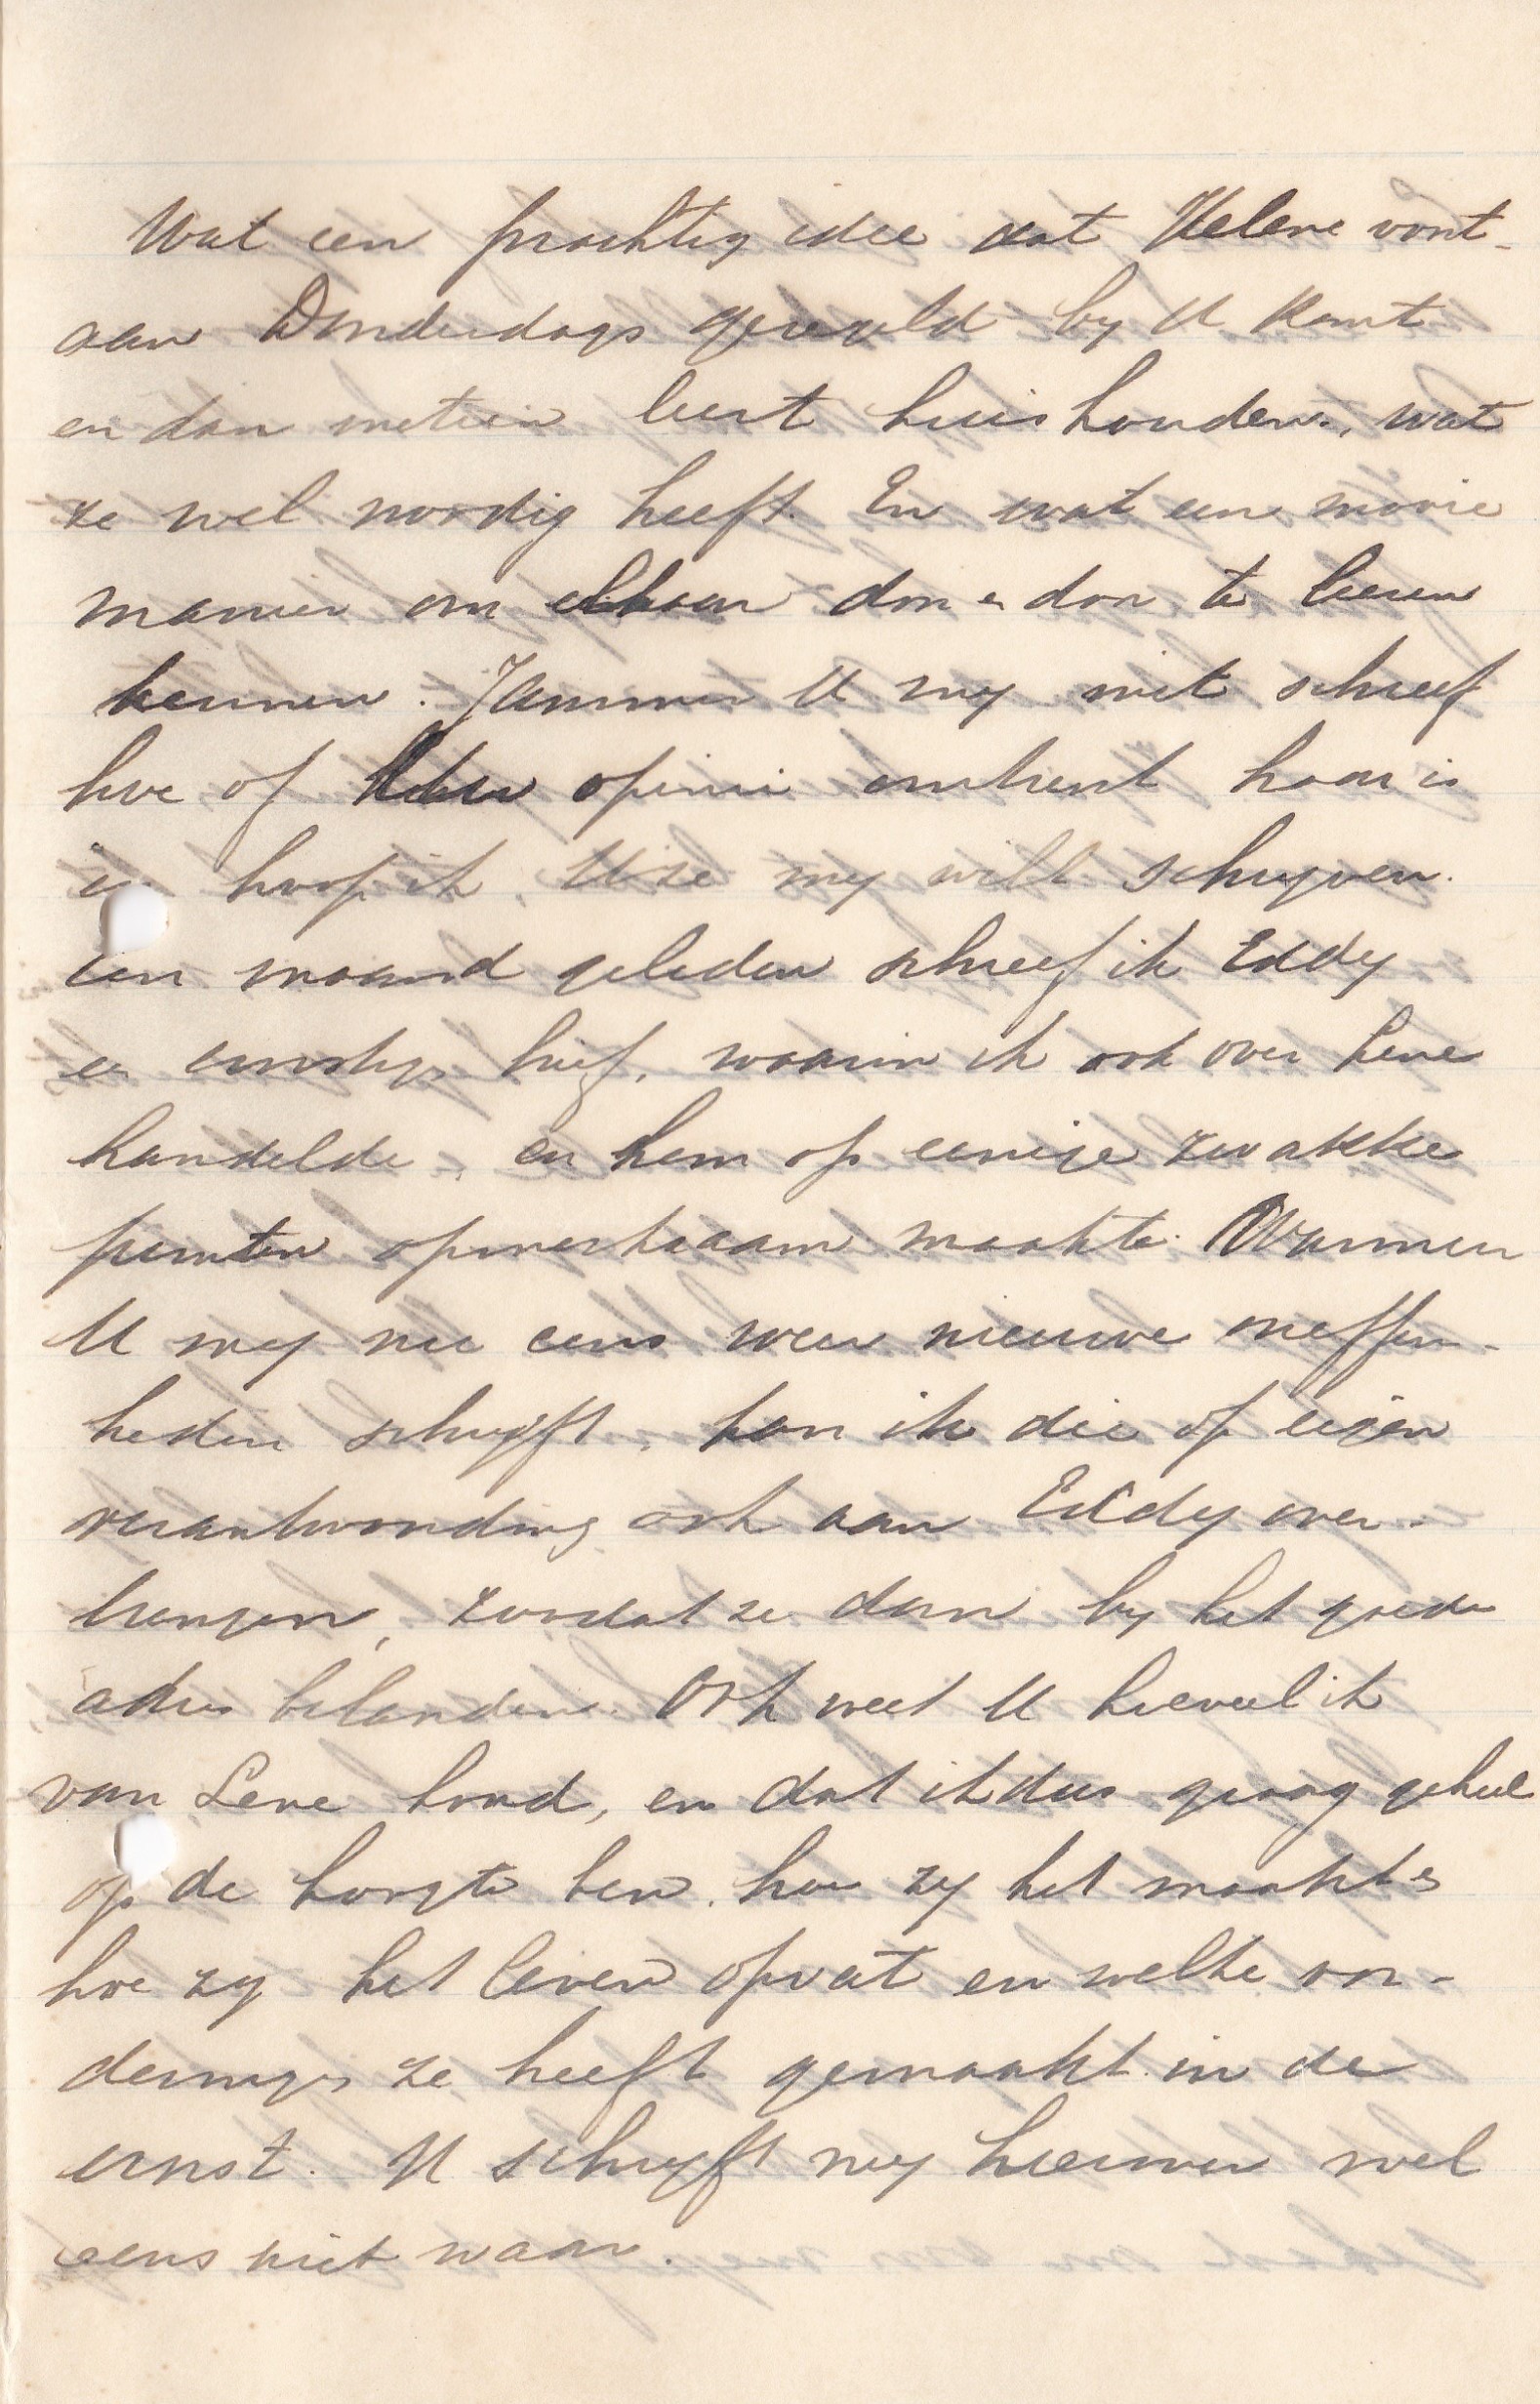 Wat een prachtig idee dat Helene voort-
aan Donderdags geregeld by U komt
en dan meteen leert huishouden, wat
ze wel noodig heeft. En wat een mooie
manier om elkaar door en door te leeren
kennen. Jammer U my niet schreef
hoe of Uw opinie omtrent haar is
en hoop ik, U ze my wilt schryven.
Een maand geleden schreef ik Eddy
een ernstige brief, waarin ik ook over Lene
handelde, en hem op eenige zwakke
punten opmerkzaam maakte. Wanneer
U my nu eens weer nieuwe oneffen-
heden schryft, kan ik die op eigen
verantwoording ook aan Eddy over-
brengen, zoodat ze dan by het goede
adres belanden. Ook weet U hoeveel ik
van Lene houd, en dat ik dus graag geheel
op de hoogte ben, hoe zy het maakt en
hoe zy het leven opvat en welke vor-
deringen ze heeft gemaakt in de
ernst. U schryft my hierover wel
eens niet waar.